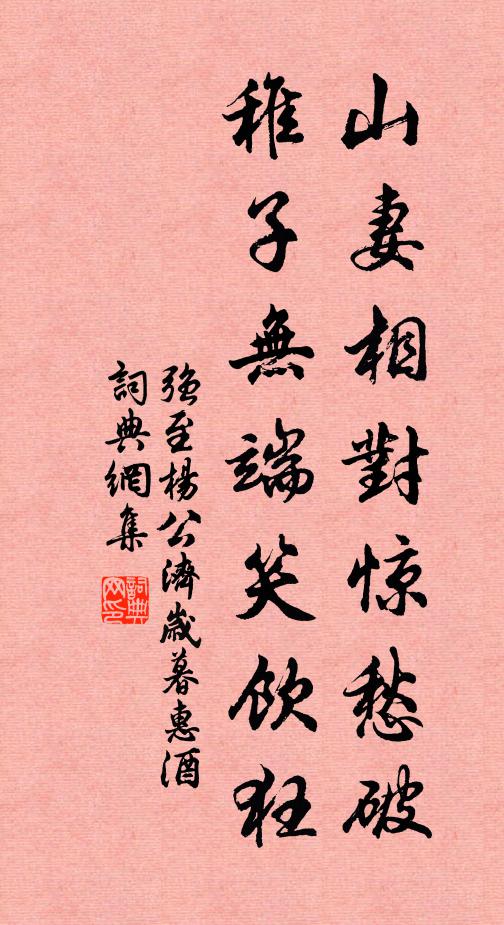 山妻相對惊愁破
稚子無端笑飲狂
強至楊公濟歲暮惠酒
詞典網集
詞典網印